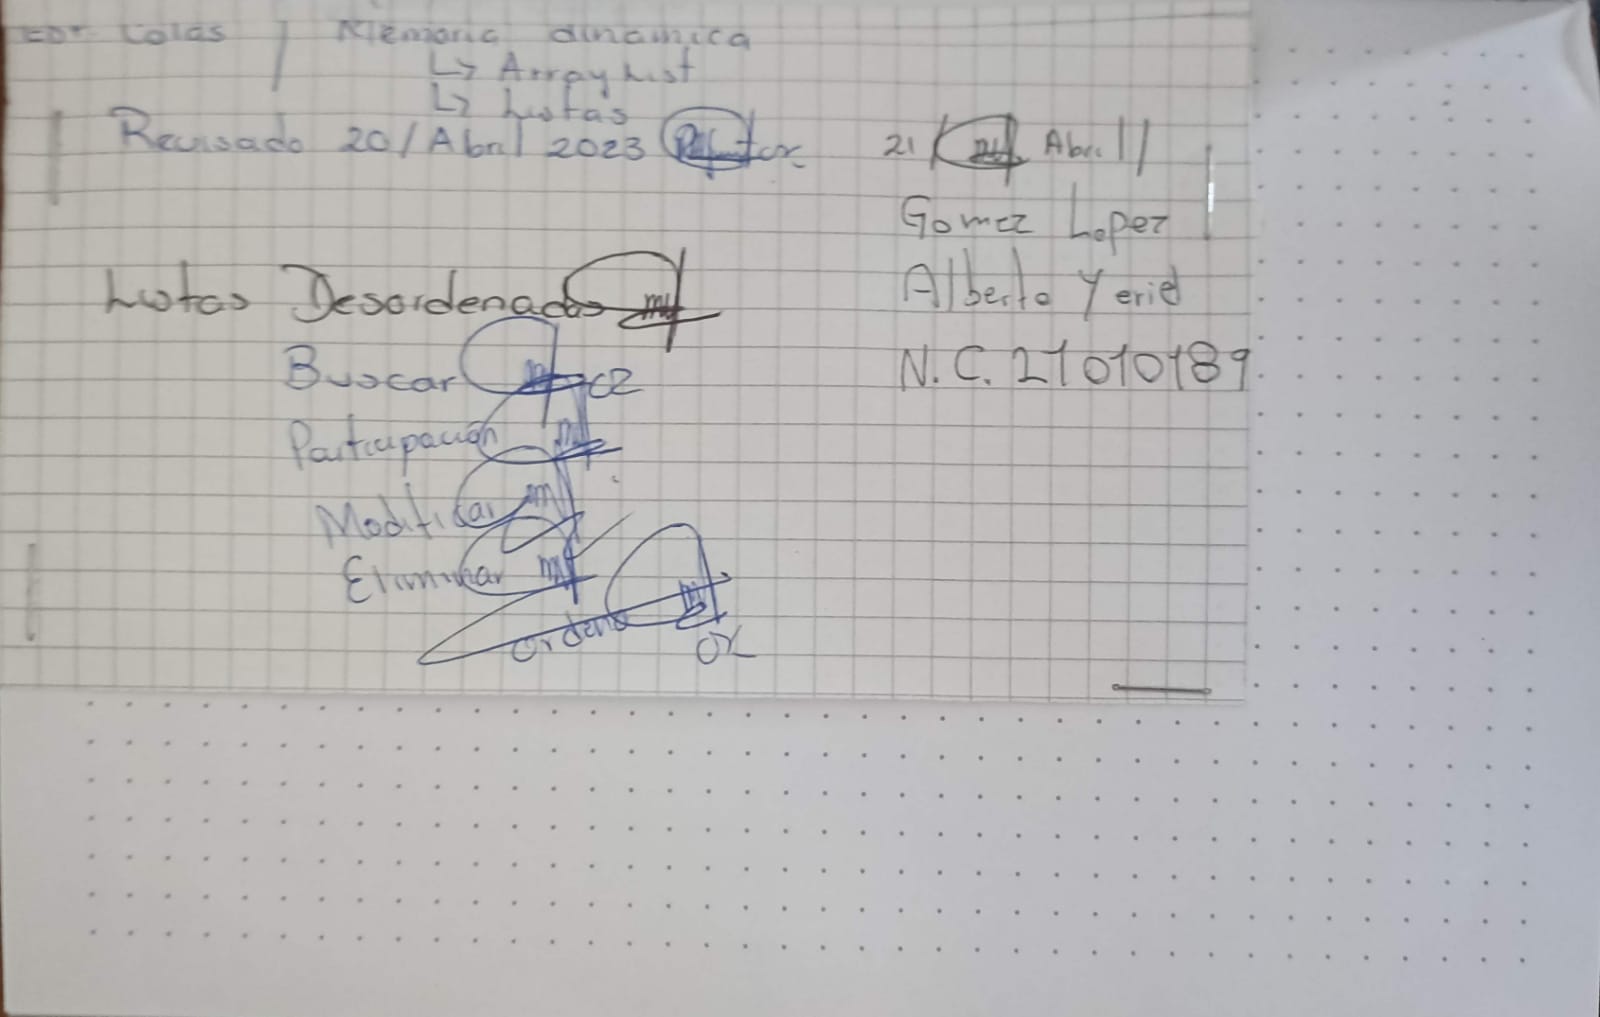 EDT Colas / Memoria dinamica
↳ ArrayList
↳ Listas
Revisado 20/Abril 2023
21 Abril
Gomez Lopez
Alberto Yeried
N.C. 21010189
Listas Desordenadas
Buscar
Participación
Modificar
Eliminar
Ordena
OK